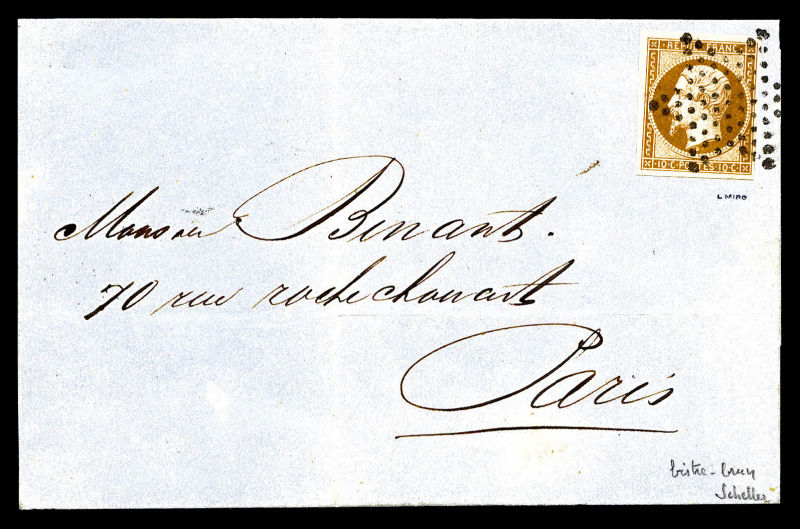 REPUB FRANC
10·C·POSTES·10·C·
L MIRO
Monsieur Benant.
70 rue rochechouart
Paris
bistre-brun
Scheller